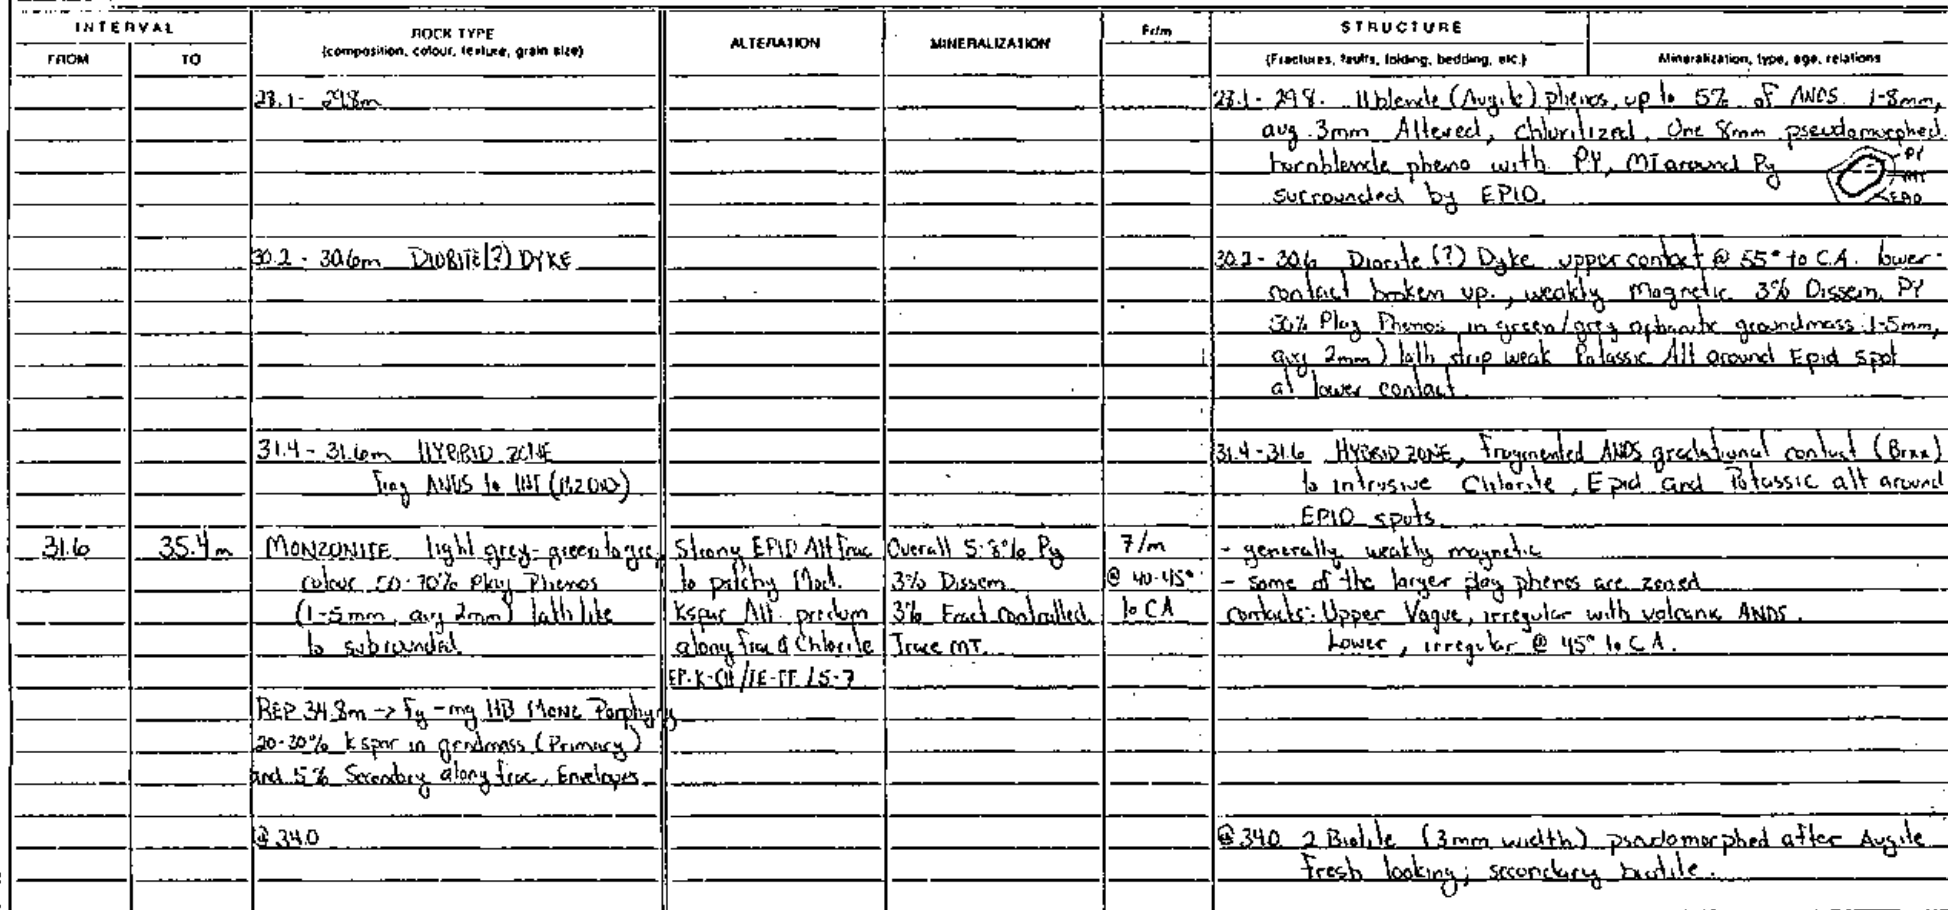 INTERVAL
FROM
TO
ROCK TYPE
(composition, colour, texture, grain size)
ALTERATION
MINERALIZATION
Fr/m
STRUCTURE
(Fractures, faults, folding, bedding, etc.)
Mineralization, type, age, relations
23.1 - 29.8m
23.1 - 29.8. Hblende (Augite) phenos, up to 5% of ANDS. 1-8mm,
avg 3mm Altered, Chloritized. One 8mm pseudomorphed
hornblende pheno with PY, MT around Py
surrounded by EPID.
PY
MT
EPID
30.2 - 30.6m DIORITE(?) DYKE
30.2 - 30.6 Diorite (?) Dyke upper contact @ 55° to C.A. lower
contact broken up., weakly Magnetic 3% Dissem. PY
50% Plag Phenos in green/grey aphanitic groundmass 1-5mm,
avg 2mm) lath strip weak Potassic Alt around Epid spot
at lower contact.
31.4 - 31.6m HYBRID ZONE
frag ANDS to INT (MZOND)
31.4-31.6 HYBRID ZONE, Fragmented ANDS gradational contact (Brxx)
to intrusive Chlorite, Epid and Potassic alt around
EPID spots
31.6
35.4m
MONZONITE light grey-green to grey
colour 50-70% Plag Phenos
(1-5mm, avg 2mm) lath like
to subrounded.
Strong EPID Alt frac
to patchy Mod.
Kspar Alt. predom
along frac & Chlorite
EP-K-CH/
Overall 5-8% Py
3% Dissem
3% Fract controlled
Trace MT.
7/m
@ 40-45°
to CA
- generally weakly magnetic
- some of the larger plag phenos are zoned
contacts: Upper Vague, irregular with volcanic ANDS.
Lower, irregular @ 45° to C.A.
REP 34.8m -> fg-mg HB MONZ Porphyry
20-30% Kspar in grndmass (Primary)
and 5% Secondary along frac. Envelopes
@ 34.0
@ 34.0 2 Biotite (3mm width) pseudomorphed after Augite
Fresh looking; secondary biotite.